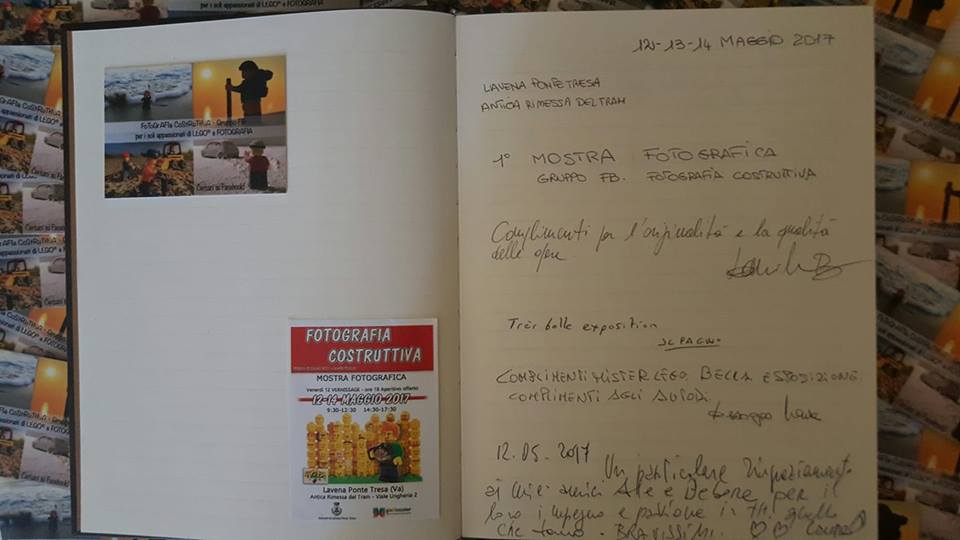 FOTOGRAFIA COSTRUTTIVA - Gruppo FB
per i soli appassionati di LEGO® e FOTOGRAFIA
Cercaci su Facebook!
FOTOGRAFIA
COSTRUTTIVA
MOSTRA FOTOGRAFICA
Venerdì 12 VERNISSAGE - ore 18 Aperitivo offerto
12-14 MAGGIO 2017
9:30-12:30 14:30-17:30
Lavena Ponte Tresa (Va)
Antica Rimessa del Tram - Viale Ungheria 2
12-13-14 MAGGIO 2017
LAVENA PONTE TRESA
ANTICA RIMESSA DEL TRAM
1° MOSTRA FOTOGRAFICA
GRUPPO FB. FOTOGRAFIA COSTRUTTIVA
Complimenti per l'originalità e la qualità
delle opere
Très belle exposition
COMPLIMENTI MISTER LEGO. BELLA ESPOSIZIONE.
COMPLIMENTI AGLI AUTORI.
12.05.2017
Un particolare ringraziamento
ai miei amici Ale e Debora per il
loro impegno e passione in quello
che fanno. BRAVISSIMI.